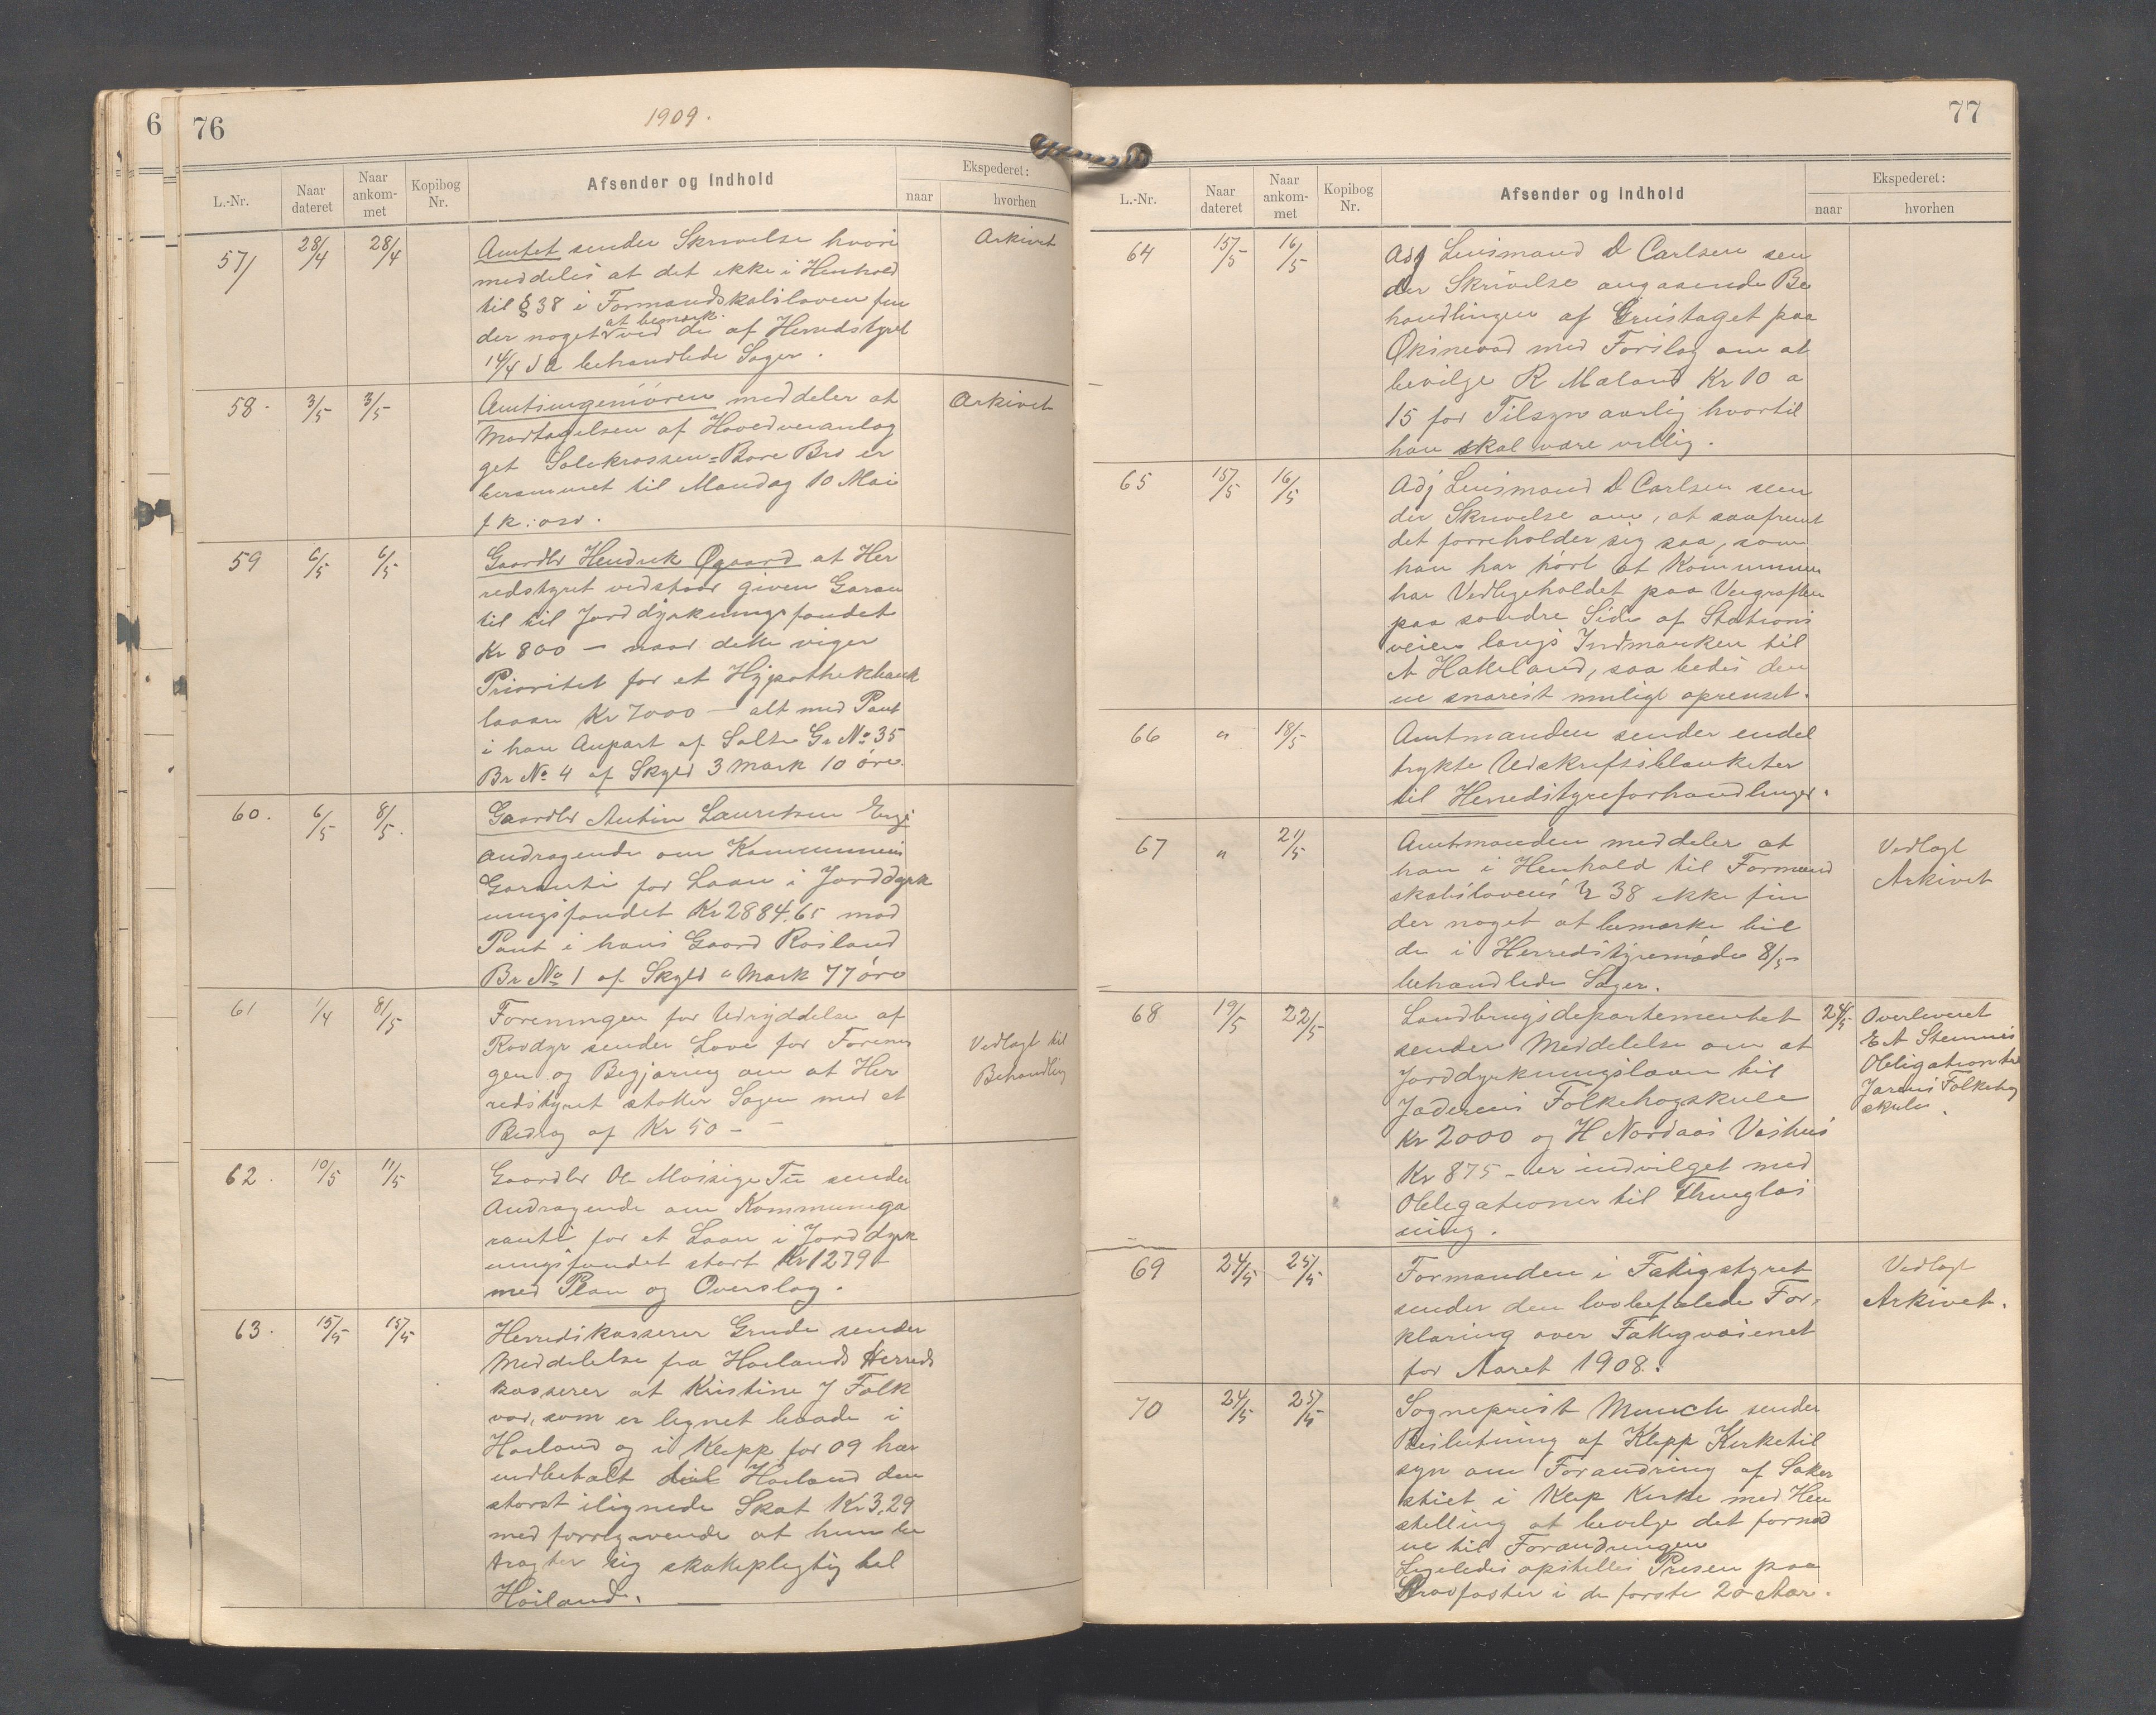 6
76
1909.
L.-Nr.
Naar dateret
Naar ankom-met
Kopibog Nr.
Afsender og Indhold
Ekspederet:
naar
hvorhen
57
28/4
28/4
Amtet sender Skrivelse hvori
meddeles at det ikke i Henhold
til § 38 i Formandskabsloven fin
der noget at bemærk. ved de af Herredstyret
14/4 d a behandlede Sager.
Arkivet
58.
3/5
3/5
Amtsingeniøren meddeler at
Modtagelsen af Hovedveianlæg
get Solekrossen=Bore Bro er
berammet til Mandag 10 Mai
f k: osv.
Arkivet
59
6/5
6/5
Gaardbr Hendrik Øgaard at Her
redstyret vedstaar given Garan
ti til Jorddyrkningsfondet
Kr 800 — naar dette viger
Prioritet for et Hypothekbank
laaan Kr 7000 — alt med Pant
i han Anpart af Salte Gr No 35
Br No 4 af Skyld 3 Mark 10 øre
60.
6/5
8/5.
Gaardbr Antin Lauritsen
Andragende om Kommunens
Garanti for Laan i Jorddyrk
ningsfondet Kr 2884.65 mod
Pant i hans Gaard Rosland
Br No 1 af Skyld " Mark 77 øre
61
1/4
8/5
Foreningen for Udryddelse af
Rovdyr sender Love for Forenin
gen og Begjæring om at Her
redstyret støtter Sagen med et
Bidrag af Kr 50 - -
Vedlagt til
Behandling
62.
10/5
11/5
Gaardbr Ole Mossige Tu sender
Andragende om Kommunega
ranti for et Laan i Jorddyrk
ningsfondet stort Kr 1279
med Plan og Overslag.
63.
15/5
15/5
Herredskasserer Grude sender
Meddelelse fra Høilands Herreds
kasserer at Kristine J Folk
vor, som er lignet baade i
Høiland og i Klepp for 09 har
indbetalt til Høiland den
størst ilignede Skat Kr 3,29
med forregivende at hun be
tragter sig skattepligtig til
Høiland.
77
L.-Nr.
Naar dateret
Naar ankom-met
Kopibog Nr.
Afsender og Indhold
Ekspederet:
naar
hvorhen
64
15/5
16/5
Adj Lensmand D Carlsen sen
der Skrivelse angaaende Be
handlingen af Grustaget paa
Øksnevad med Forslag om at
bevilge R Maland Kr 10 a
15 for Tilsyn aarlig hvortil
han skal være villig.
65
15/5
16/5
Adj Lensmand D Carlsen sen
der Skrivelse om, at saafremt
det forreholder sig saa, som
han har hørt at Kommunen
har Vedligeholdet paa Veigrøften
paa søndre Side af Stations
veien langs Indmarken til
A Hakeland, saa bedes den
ne snarest muligt oprenset.
66
"
18/5
Amtmanden sender endel
trykte Udskriftsblanketer
til Herredstyreforhandlinger.
67
"
21/5
Amtmanden meddeler at
han i Henhold til Formand
skabslovens § 38 ikke fin
der noget at bemærke til
de i Herredstyremøde 8/5
behandlede Sager.
Vedlagt
Arkivet
68
19/5
22/5
Landbrugsdepartementet
sender Meddelelse om at
Jorddyrkningslaan til
Jæderens Folkehøgskule
Kr 2000 og H Nordaas Vashus
Kr 875 - er indvilget med
Obligationer til Thinglæs
ning.
24/5
Overleveret
E A Stemnes
Obligation til
Jærens Folkehøg
skule.
69
24/5
25/5
Formanden i Fattigstyret
sender den lovbefalede For-
klaring over Fattigvæsenet
for Aaret 1908.
Vedlagt
Arkivet.
70
24/5
25/5
Sogneprest Munch sender
Beslutning af Klepp Kirketil
syn om Forandring af Saker
stiet i Klep Kirke med Hen
stilling at bevilge det fornød
ne til Forandringen
Ligeledes opstilles Prisen paa
Gravfæster i de første 20 Aar.